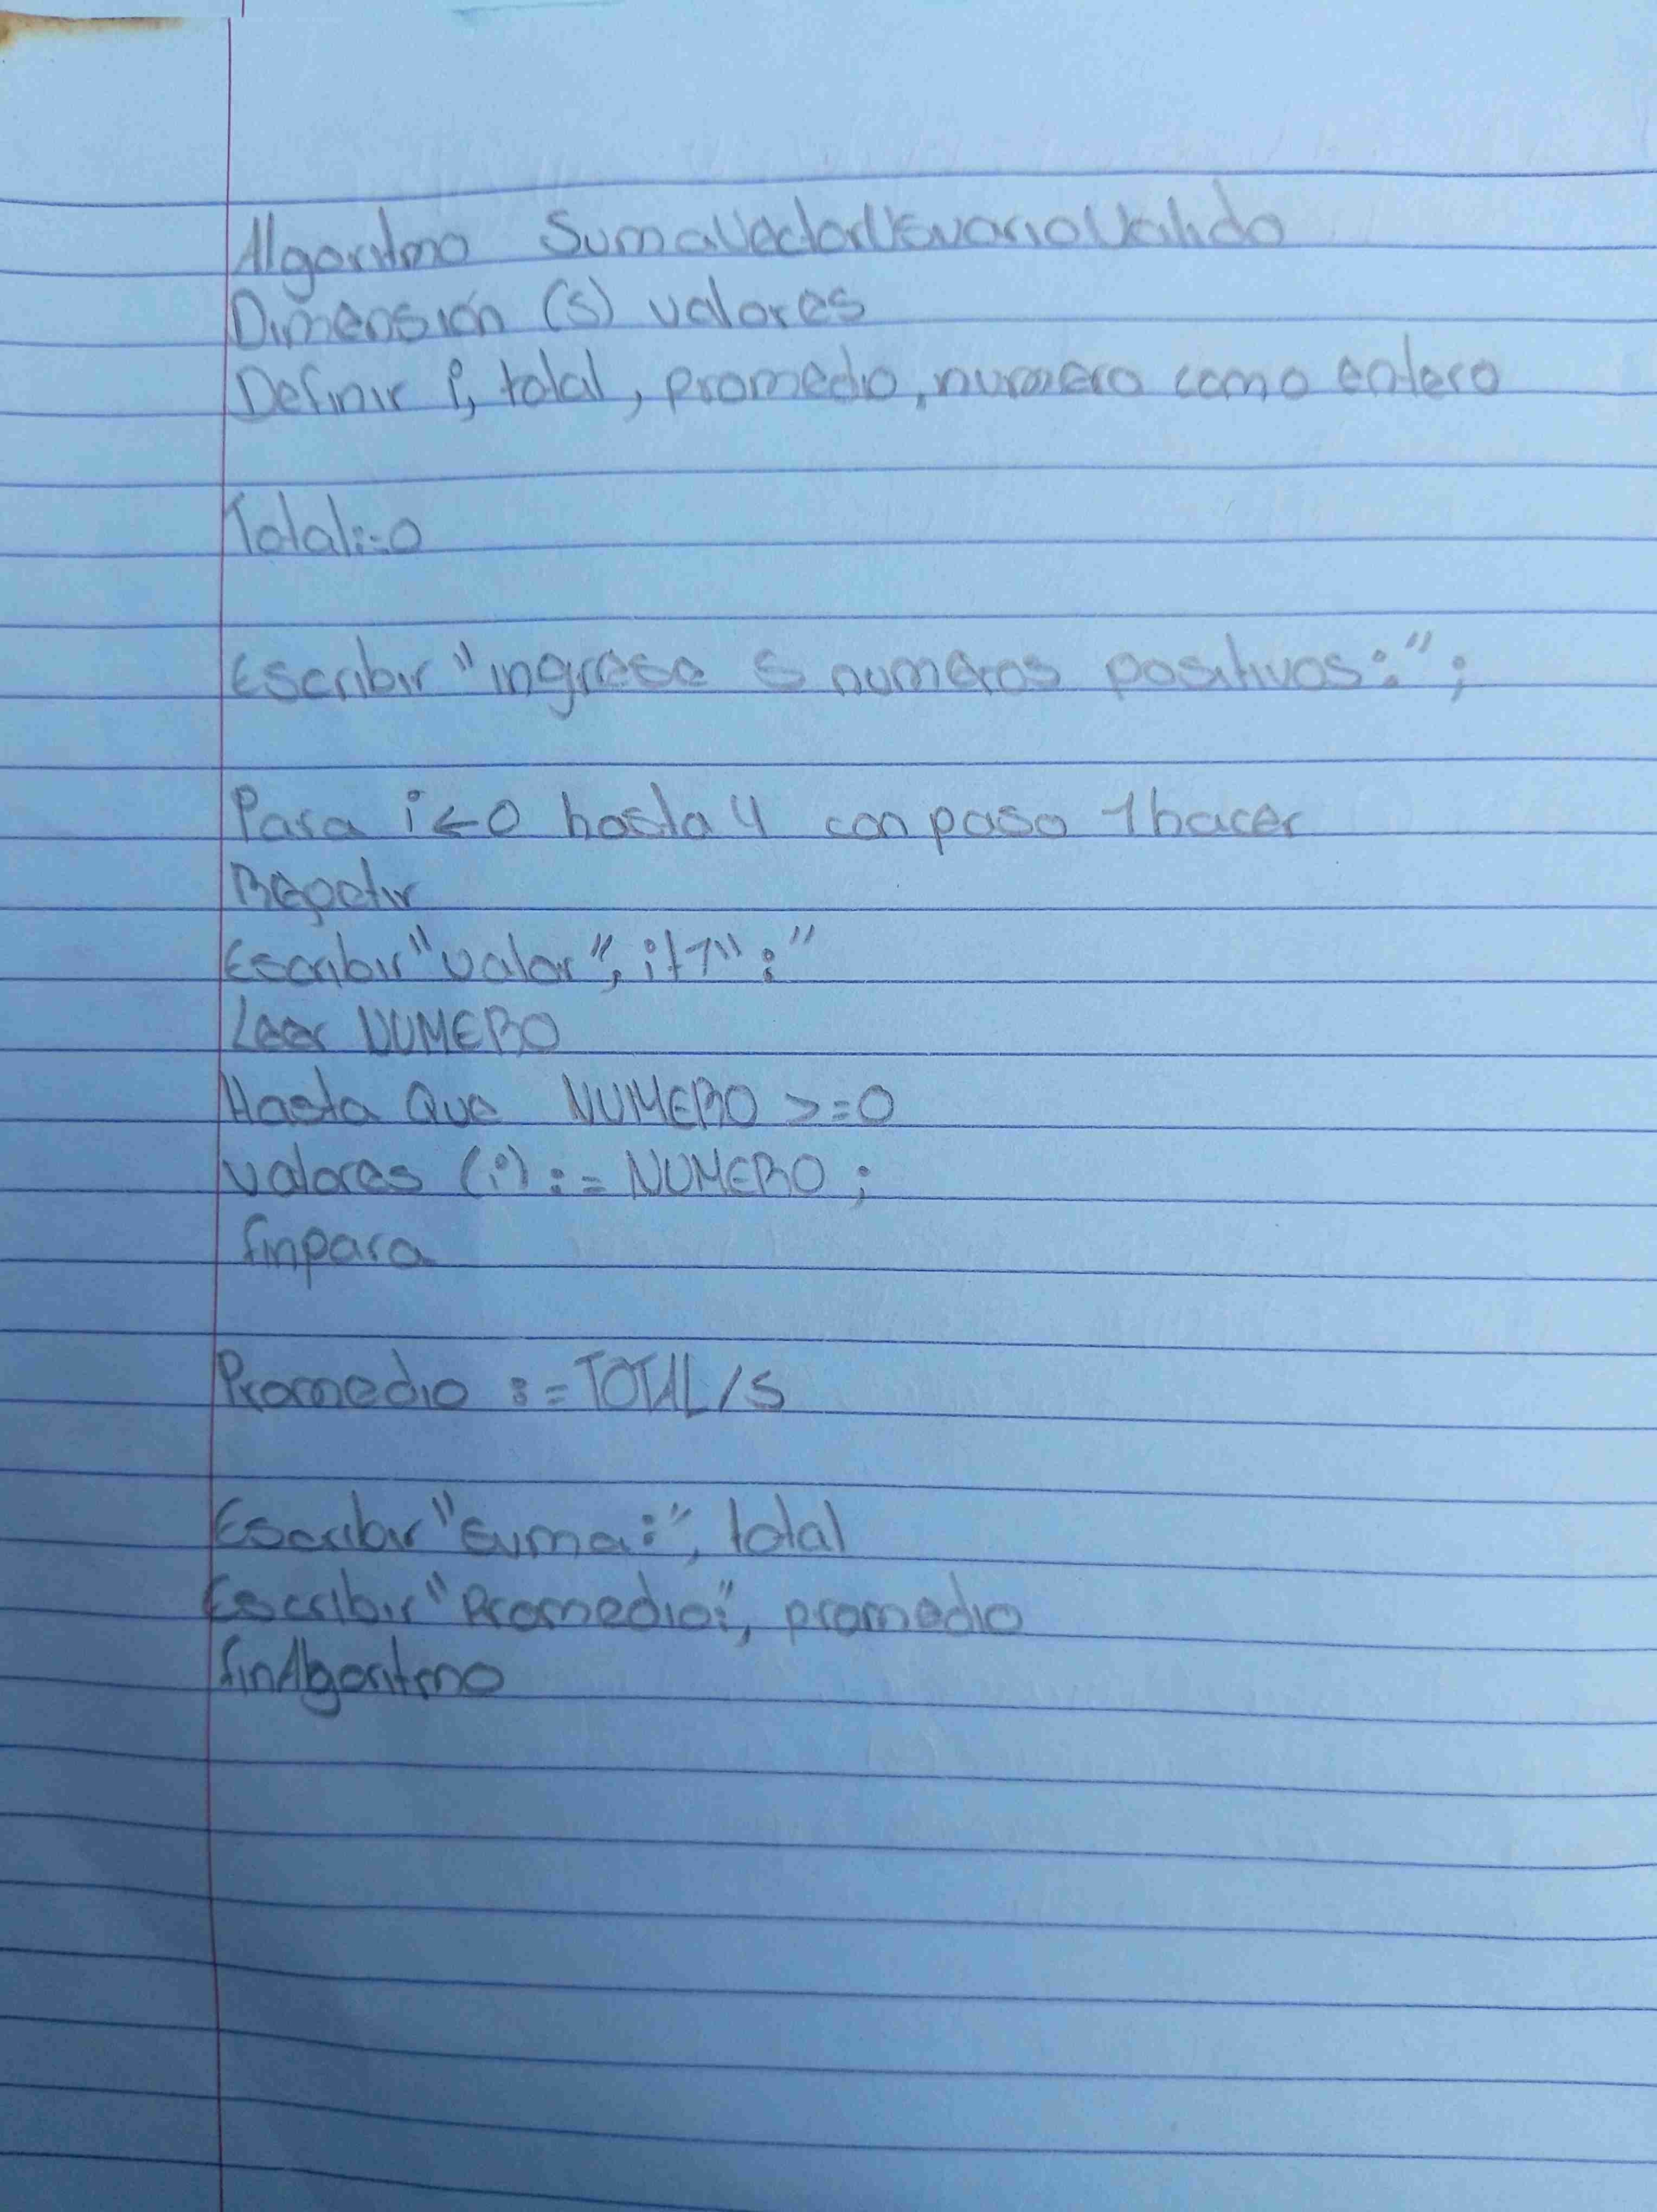 Algoritmo SumaVectorUsuarioValido
Dimensión (5) valores
Definir i, total, promedio, numero como entero
Total:=0
Escribir "ingrese 5 numeros positivos:";
Para i<-0 hasta 4 con paso 1 hacer
Repetir
Escribir "valor", i+1":"
Leer NUMERO
Hasta Que NUMERO >=0
valores (i) := NUMERO ;
finpara
Promedio := TOTAL/5
Escribir "suma:", total
Escribir "Promedio:", promedio
finAlgoritmo